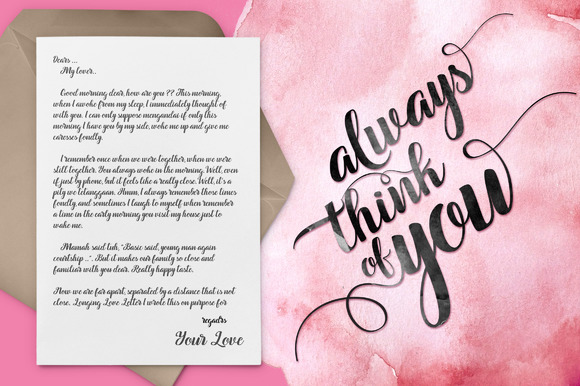 Dears ...
My lover..
Good morning dear, how are you ?? This morning,
when I awoke from my sleep, I immediately thought of
with you. I can only suppose mengandai if only this
morning I have you by my side, woke me up and give me
caresses fondly.
I remember once when we were together, when we were
still together. You always woke in the morning. Well, even
if just by phone, but it feels like a really close. Well, it's a
pity we telanggaan. Hmm, I always remember those times
fondly, and sometimes I laugh to myself when remember
a time in the early morning you visit my house just to
wake me.
Mamah said tuh, "Basic said, young man again
courtship ..". But it makes our family so close and
familiar with you dear. Really happy taste.
Now we are far apart, separated by a distance that is not
close. Longing Love Letter I wrote this on purpose for
regadrs
Your Love
always
think
of you